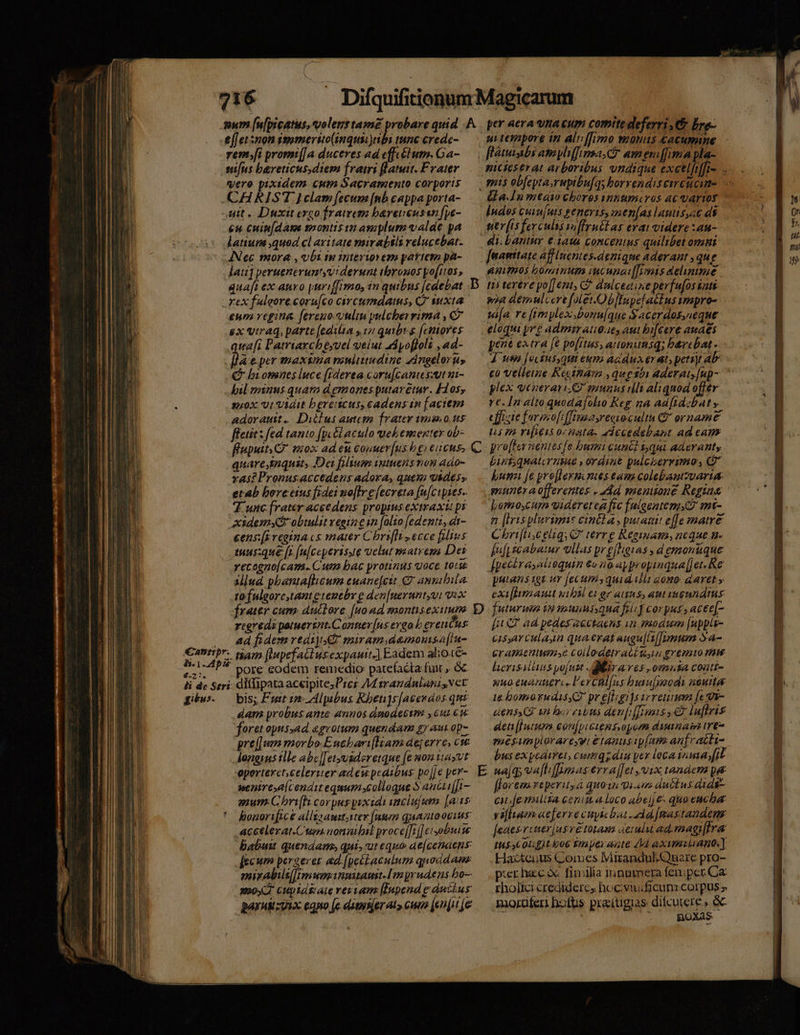 716 Disquisitionum Magicarum
num suspicatus, volens tamē probare quid
esset: non immerito (inquis) tibi tunc crede-
rem, si promissa duceres ad effectum. Ga-
uisus hæreticus, diem fratri statuit. Frater
vero pixidem cum Sacramento corporis
CHRISTI clam secum sub cappa porta-
uit. Duxit ergo fratrem hæreticus in spe-
cū cuiusdam montis in amplum valde pa
latium, quod claritate mirabili relucebat.
Nec mora, vbi in interiorem partem pa-
latij peruenerunt, viderunt thronos positos,
quasi ex auro purissimo, in quibus sedebat
rex fulgore corusco circumdatus, & iuxta
eum regina sereno vultu pulcherrima, &
ex vtraq, parte sedilia, in quibus seniores
quasi Patriarchę, vel velut Apostoli, ad-
stāte per maxima multitudine Angelorū,
& hi omnes luce siderea coruscantes, vt ni-
hil minus quam dæmones putarētur. Hos,
mox vt vidit hæreticus, cadens in faciem
adorauit. Dictus autem frater immotus
stetit: sed tanto spectaculo vehementer ob-
stupuit, & mox ad eū conuersus hæreticus,
quare, inquit, Dei filium intuens non ado-
ras? Pronus accedens adora, quem vides,
et ab hore eius fidei nostre secreta suscipies.
Tunc frater accedens propius extraxit pi
xidem, & obtulit regine in solio sedenti, di-
cens: si regina es mater Christi, ecce filius
tuus: quē si susceperis, te velut matrem Dei
recognoscam. Cum hac protinus voce totū
illud phantasticum euanescit & annihila
to fulgore, tant e tenebre densuerunt, vt vix
frater cum ductore suo ad montis exitum
regredi potuerint. Conuersus ergo hæreticus
ad fidem redijt, & miram dæmonis astu-
tiam stupefactus expauit. Eadem alio tē-
pore eodem remedio patefacta fuit, &
dissipata accipite, Pres Mirandulani, ver
bis; Fuit in Alpibus Rhenis sacerdos qui
dam probus ante annos duodecim, cui cū
foret opus, ad ægrotum quendam graui op-
pressum morbo Eucharistiam deferre, cū
longius ille abesset, videretque se non ita, vt
oporteret, celeriter ad eū pedibus posse per-
uenire, ascendit equum, colloque Sanctissi-
mum Christi corpus pixidi inclusum (a is
honorifice alligauit, iter suum quanto ocius
accelerat. Cum non nihil processisset, obuiū
habuit quendam, qui, vt equo descendens
secum pergeret ad spectaculum quoddam
mirabilissimum inuitauit. Imprudens ho-
mo, & cupiditate rei tam stupende ductus
paruit: vix equo se dimiserat, cum sensit se
Cantipr.
li. 1. Apū
4.2.
li de Stri
gibus.
A
B
C
D
E
per aera vna cum comite deferri, & bre-
ui tempore in altissimo montis cacumine
statuit, vbi amplissima, & amenissima pla-
nicies erat arboribus vndique excelsissi-
mis obsepta, rupibusq; horrendis circūcin-
cta. In medio choros innumeros ac varios
ludos cuiusuis generis, mensas lautis, ac di
uersis ferculis instructas erat videre: au-
di. bantur etiam concentus quilibet omni
suauitate affluentes, denique aderant, que
animos hominum iucundissimis delinimē
tis terere possent, & dulcedine perfusos inti-
ma demulcere solet. Obstupefactus impro-
uisa re simplex, bonusque Sacerdos, neque
eloqui pre admiratione, aut hiscere audēs
pene extra se positus, attonitusq; hærebat.
Tum socius, qui eum adduxerat, petijt ab
eo velletne Reginam, que ibi aderat, sup-
plex venerari, & munus illi aliquod offer
re. In alto quodā solio Regina assidebat,
effigie formosissima, regeoo cultu & orname
tis multis ornata. Accedebant ad eam
prosternentes se humi cuncti, qui aderant,
bini, quaterniue, ordine pulcherrimo, &
humi se prosternentes eam colebant: varia
munera offerentes. Ad mentionē Regina
homo, cum videret eā sic fulgentem, & mi-
nistris plurimis cinctā, putauit esse matrē
Christi, celiq; & terre Reginam, neque n.
suspicabatur vllas prestigias, dæmonūque
spectra, alioquin eo nō appropinquasset. Re
putans igitur secum, quid illi dono daret,
existimauit nihil ei gratius, aut iucundius
futurum in manusquam filij corpus, acces-
sit & ad pedes accedens in modum supplic-
is, arculā, in qua erat augustissimum Sa-
cramentum, e collo detractā, in gremio mu
lieris illius posuit. Mira res, omnia conti-
nuo euanuere. Perculsus huiusmodi nouita
te homo rudis, & prestigijs irretitum se vi-
dens, & in horribus densissimis, & lustris
destitutum conspiciens, opem diuinam ire-
mens implorare, vt e tantis ipsum anfracti-
bus expediret, cumq; diu per loca inuia, sil
uasq; vastissimas errasset, vix tandem pa-
storem reperit, a quo in viam ductus didi-
cit, se millia centū a loco abesse, quo eucha-
ristiam deferre cupiebat. Ad suas tandem
sedes reuersus rē totam detulit ad magistra
tus, & contigit hoc semper ante Maximilianū.
Hactenus Comes Mirandul. Quare pro-
pter hæc & similia innumera semper Ca
tholici credidere, hoc viuificum corpus,
mortiferi hostis præstigias discutere, &
noxas